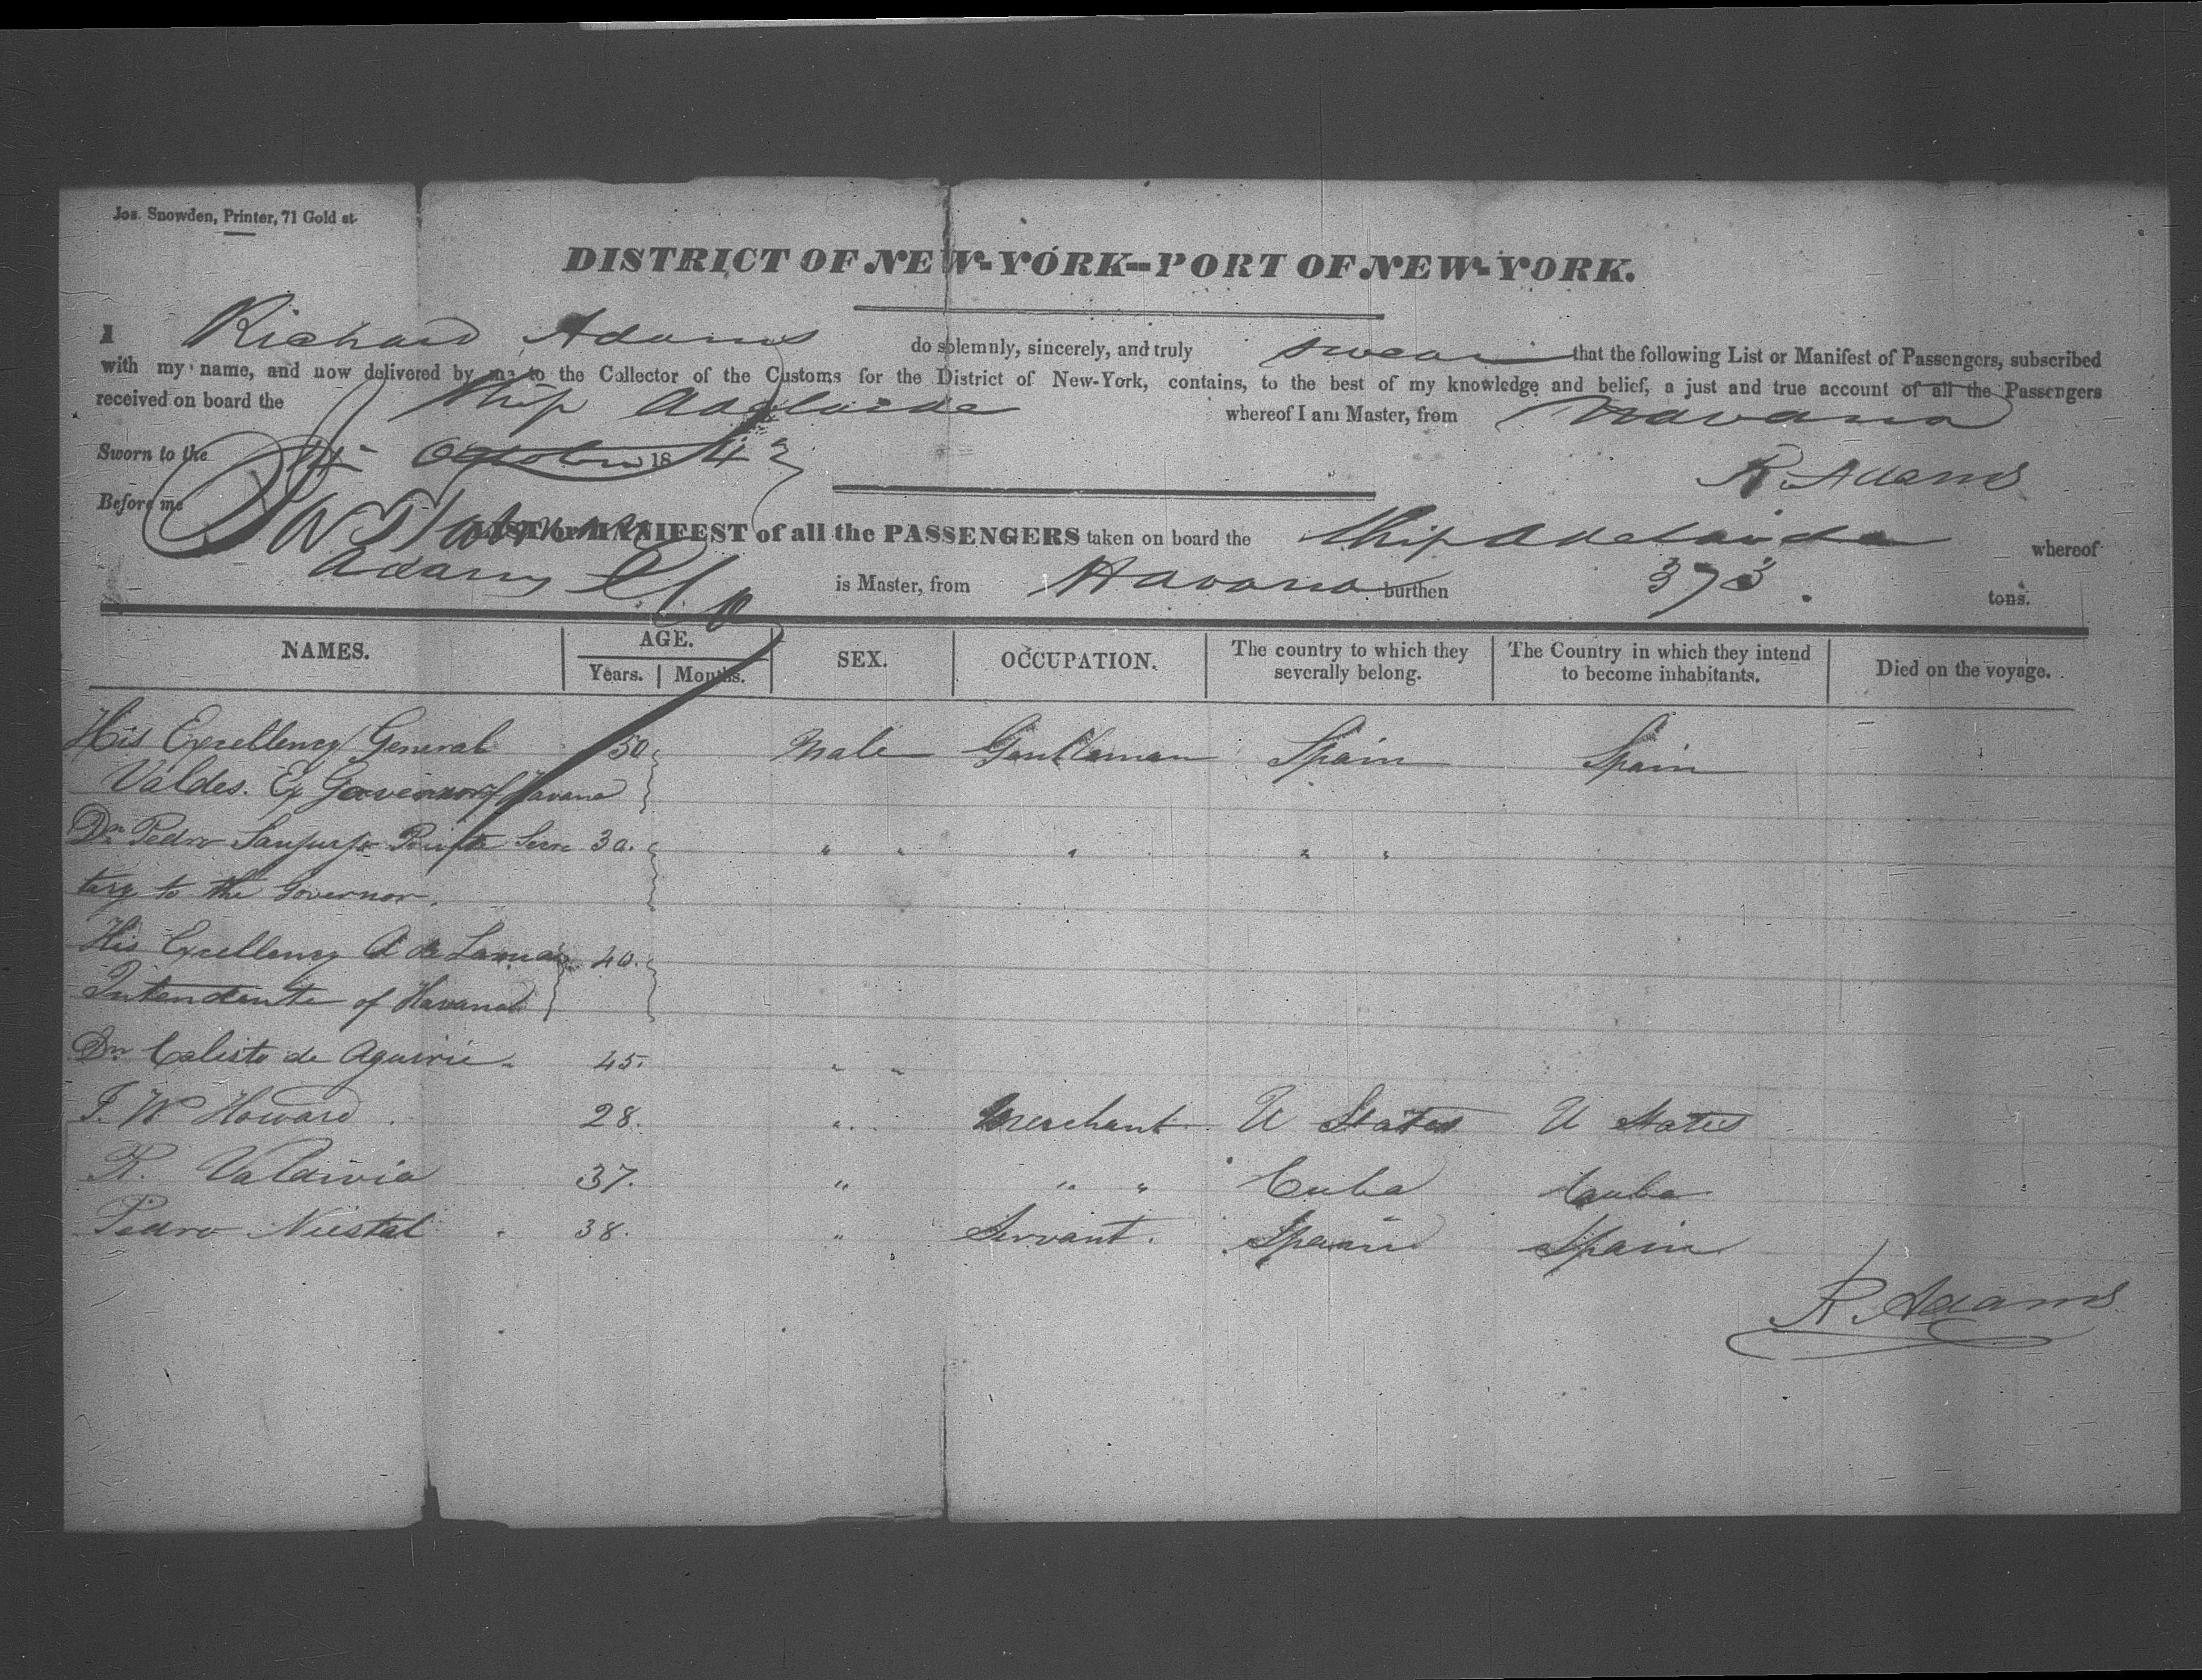 Jos. Snowden, Printer, 71 Gold st.
DISTRICT OF NEW-YORK--PORT OF NEW-YORK.
I Richard Adams do solemnly, sincerely, and truly swear that the following List or Manifest of Passengers, subscribed
with my name, and now delivered by me to the Collector of the Customs for the District of New-York, contains, to the best of my knowledge and belief, a just and true account of all the Passengers
received on board the Ship Adelaide whereof I am Master, from Havana
Sworn to the October 184 R. Adams
Before me
LIST or MANIFEST of all the PASSENGERS taken on board the Ship Adelaide whereof
Adams is Master, from Havana burthen 373 tons.
NAMES. AGE. SEX. OCCUPATION. The country to which they severally belong. The Country in which they intend to become inhabitants. Died on the voyage.
Years. Months.
His Excellency General 50 Male Gentleman Spain Spain
Valdes. Ex Governor of Havana
Dn Pedro Private Secre 30. " " " " "
tary to the Governor.
His Excellency A de 40.
Intendente of Havana
Dn Calisto de Aguirre 45. " "
W Howard 28. " Merchant U States U States
R. Valdivia 37. " " " Cuba Cuba
Pedro 38. " Servant. Spain Spain
R. Adams